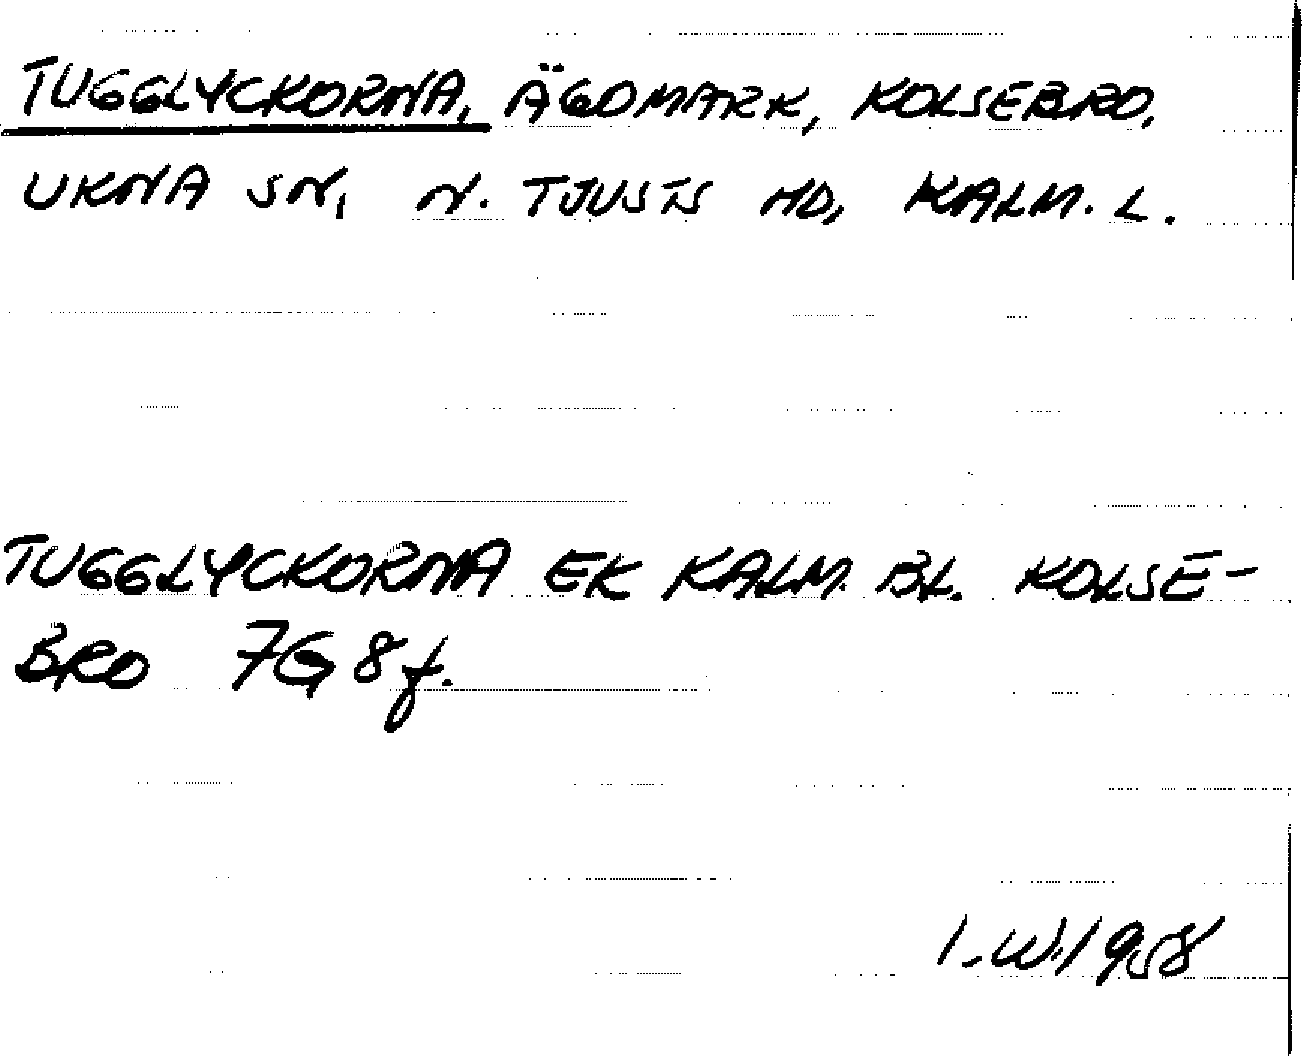 TUGGLYCKORNA, ÄGOMARK, KOLSEBRO,
UKNA SN, N. TJUSTS HD, KALM. L.
TUGGLYCKORNA EK KALM. BL. KOLSE-
BRO 7G 8f.
I.W. 1958